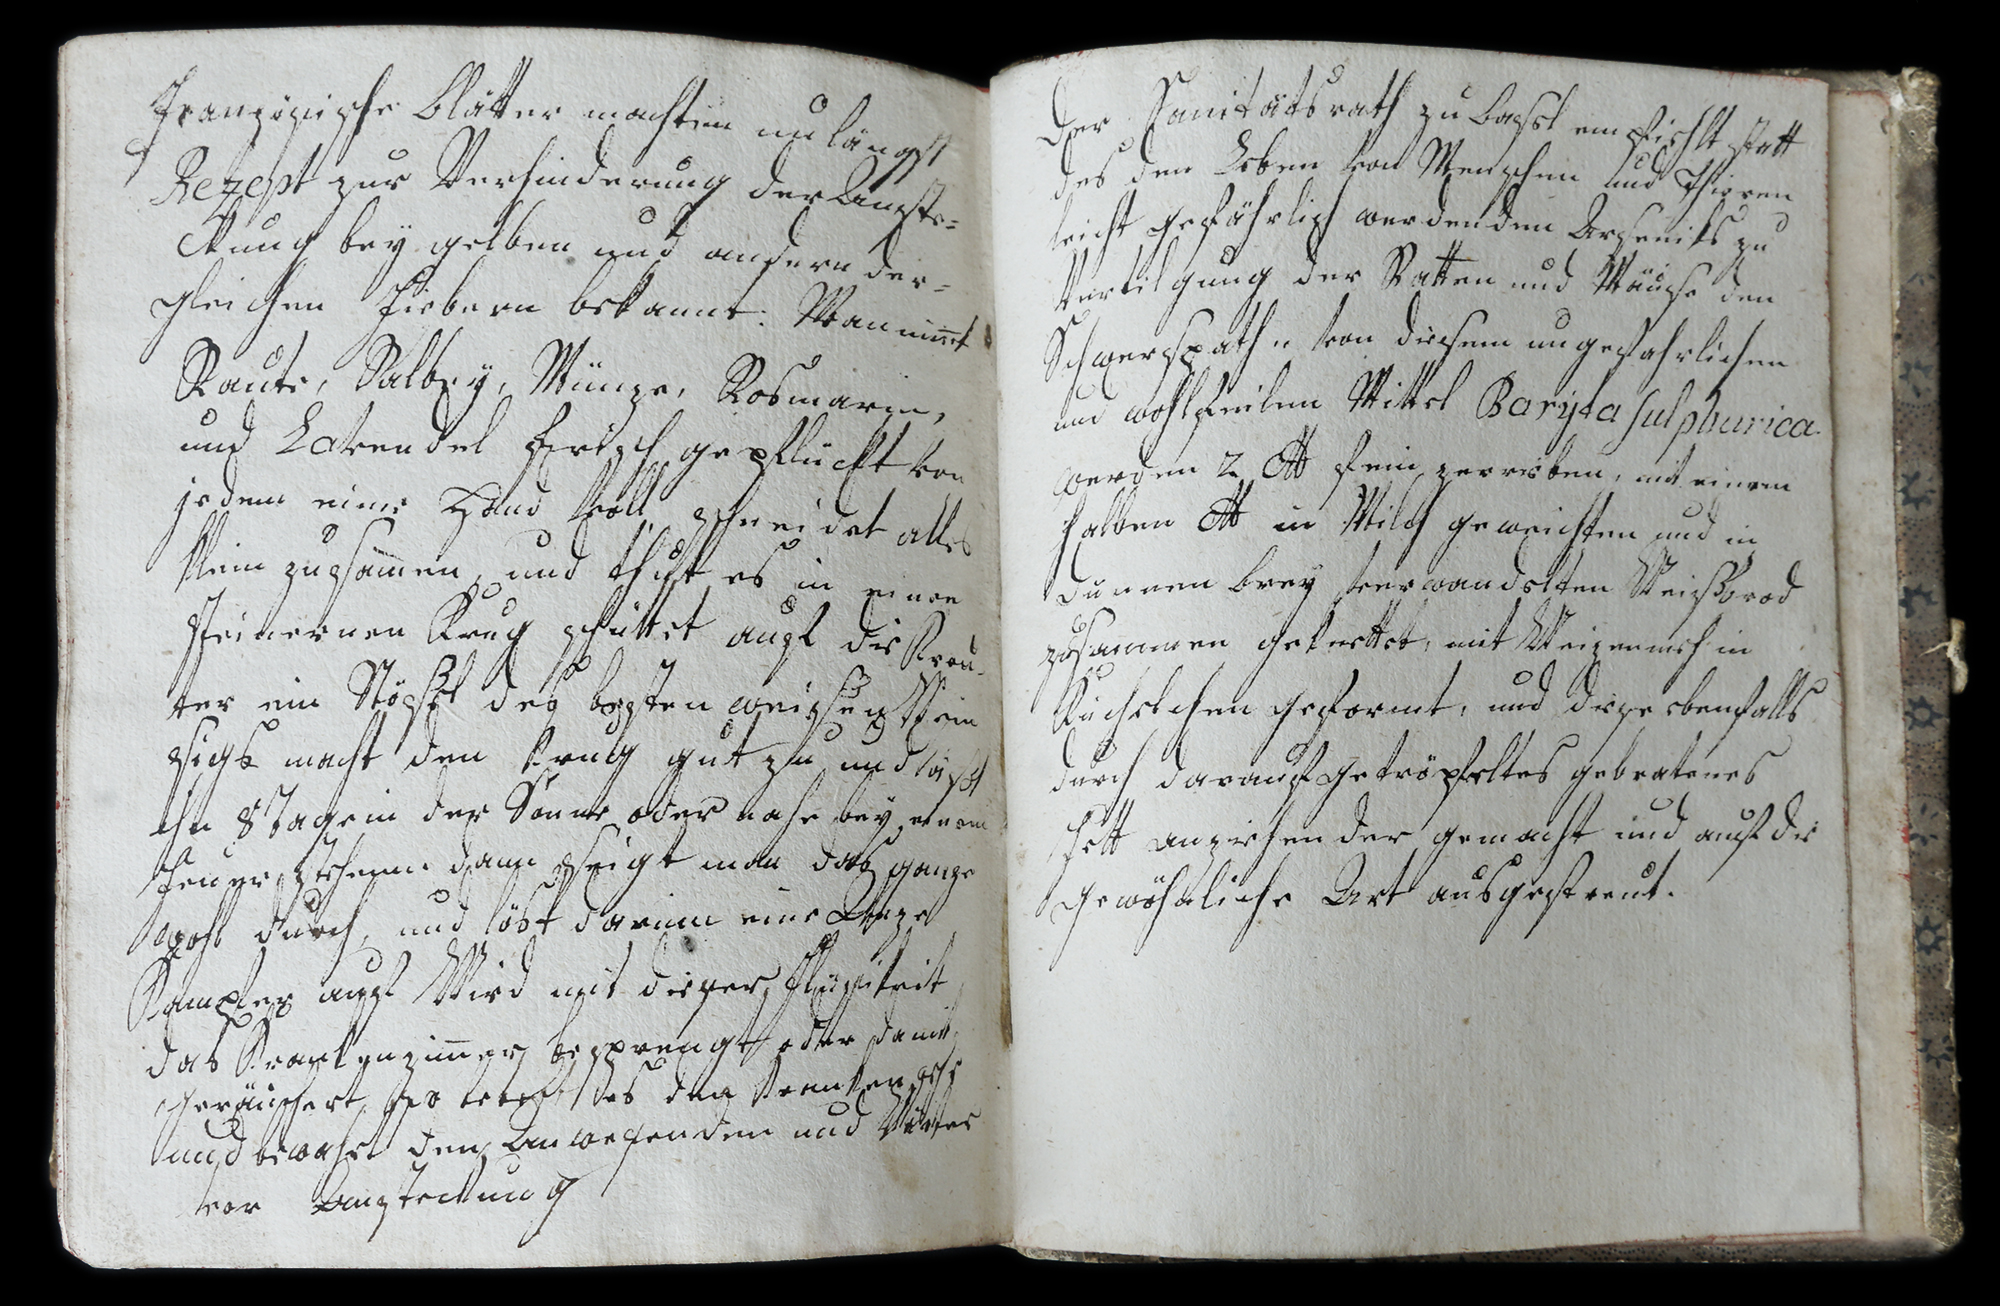 Französische Blätter machten unlängst
Rezept zur Verhinderung der Anste-
ckung bey gelben und andern der-
gleichen Fiebern bekannt: Man nim̅t
Raute, Salbey, Münze, Rosmarin,
und Lavendel frisch gepflückt von
jedem eine Hand voll, schneidet alles
klein zusam̅en, und thut es in einen
steinernen Krug schüttet auf die Kräu-
ter ein des besten weissen Wein
essigs macht den Krug gut zu und läßt
ihn 8 Tage in der Sonne oder nahe bey einem
Feuer stehenn dann seigt man das ganze
wohl durch, und löst darinn eine Unze
Kampfer auf Wird mit dieser Flüssikeit
das Krankenzim̅er besprengt oder damit
geräuchert, so es den Kranken
und bewahrt den Anwesenden und Wärter
vor Ansteckung
Der Sanitätsrath zu Basel empfiehlt statt
des den Leben von Menschen und Thieren
leicht gefährlich werdenden Arseniks zu
Vertilgung der Ratten und Mäuse den
Schwerspath. von diesem ungefahrlichen
und wohlfeilen Mittel Baryta sulphurica
werden 2 ℔ fein zerrieben, mit einem
halben ℔ in Milch geweichten und in
dünnen brey verwandelten Weißbrod
zusammen geknettet, mit Weizenmehl in
Küchelchen geformt, und diese ebenfalls
durch darauf getröpfeltes gebratenes
Fett anziehender gemacht und auf die
gewöhnliche Art ausgestreut.